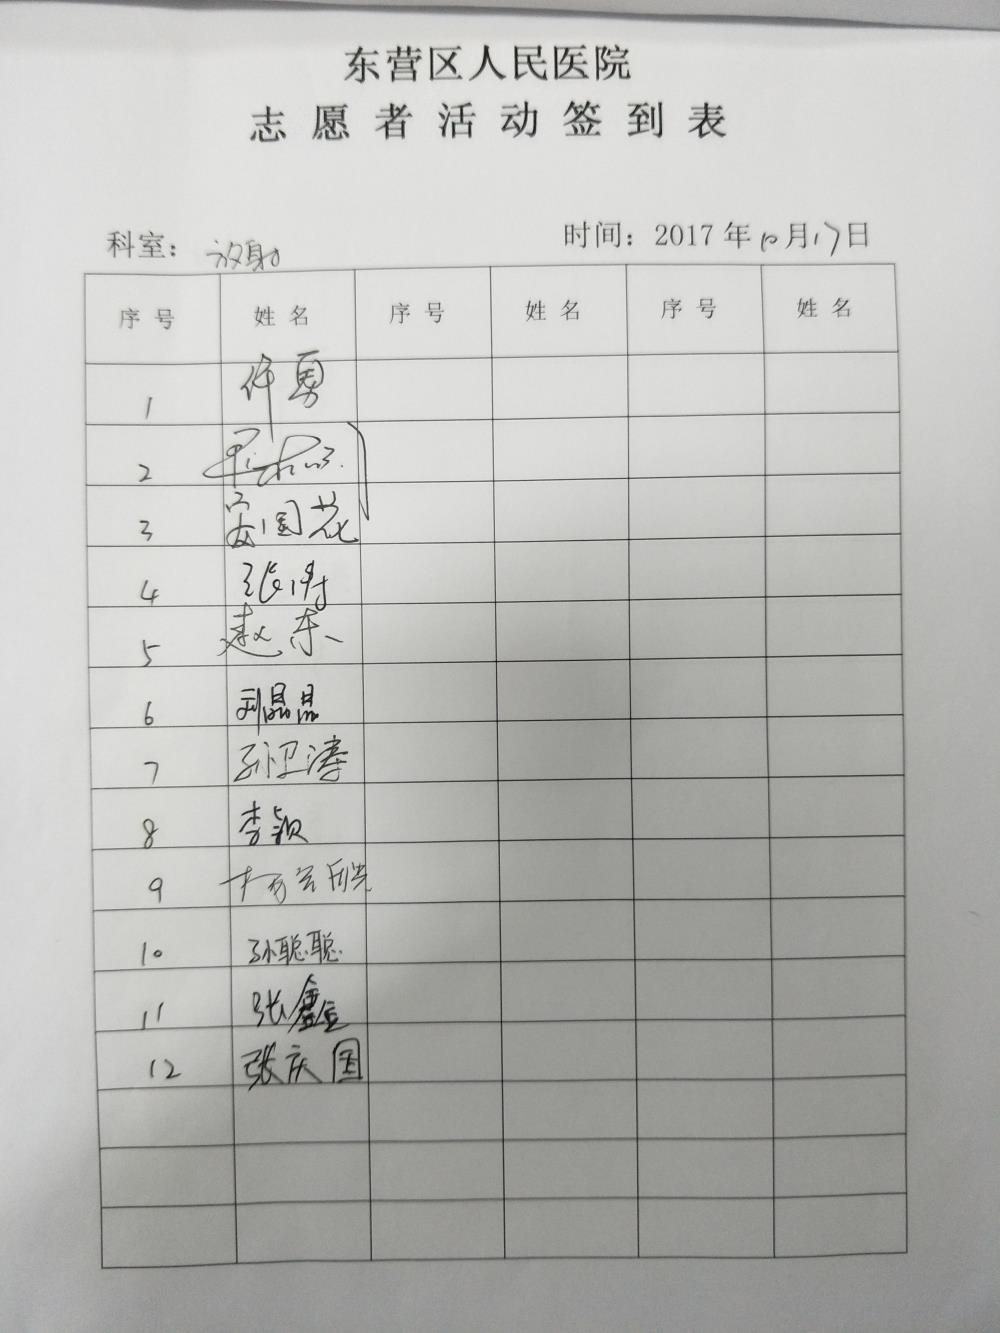 东营区人民医院
志愿者活动签到表
科室：放射 时间：2017年10月17日
序号 姓名 序号 姓名 序号 姓名
1 许勇
2
3 安国花
4 张博
5 赵东
6 刘晶晶
7 孙卫涛
8 李颖
9
10 孙聪聪
11 张鑫
12 张庆国